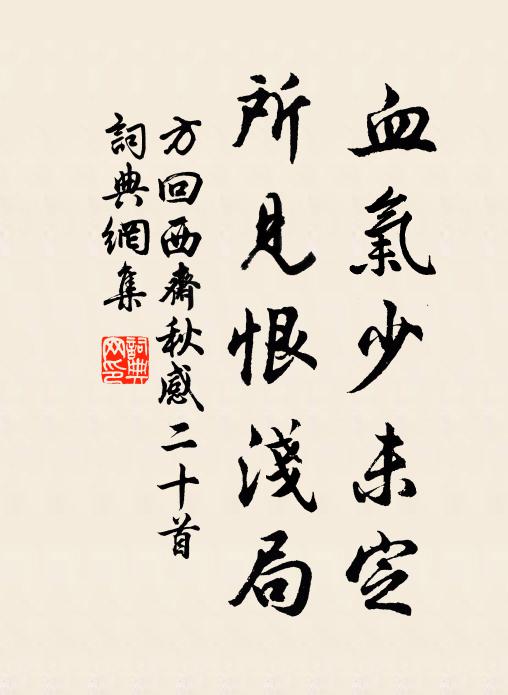 血氣少未定
所見恨淺局
方回西齋秋感二十首
詞典網集
詞典网印